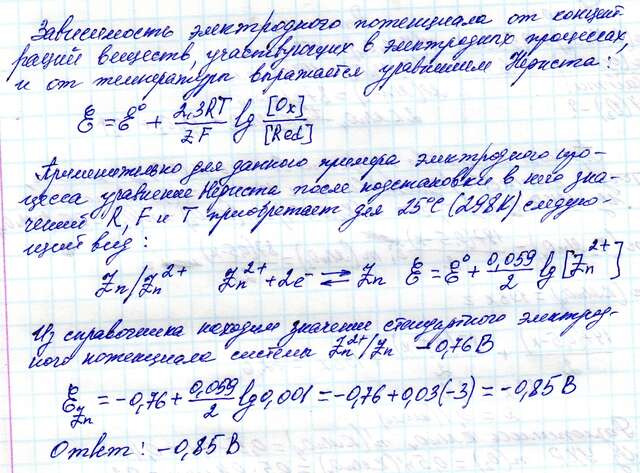 Зависимость электродного потенциала от концент
раций веществ, участвующих в электродных процессах,
и от температуры выражается уравнением Нернста:
E = E° + 2,3RT/ZF lg [Ox]/[Red]
Применительно для данного примера электродного про-
цесса уравнение Нернста после подстановки в него зна-
чений R, F и T приобретает для 25°C (298К) следую-
щий вид:
Zn/Zn²⁺ Zn²⁺ + 2e⁻ ⇄ Zn E = E° + 0,059/2 lg [Zn²⁺]
Из справочника находим значение стандартного электрод-
ного потенциала системы Zn²⁺/Zn -0,76 В
E Zn = -0,76 + 0,059/2 lg 0,001 = -0,76 + 0,03(-3) = -0,85 В
Ответ: -0,85 В